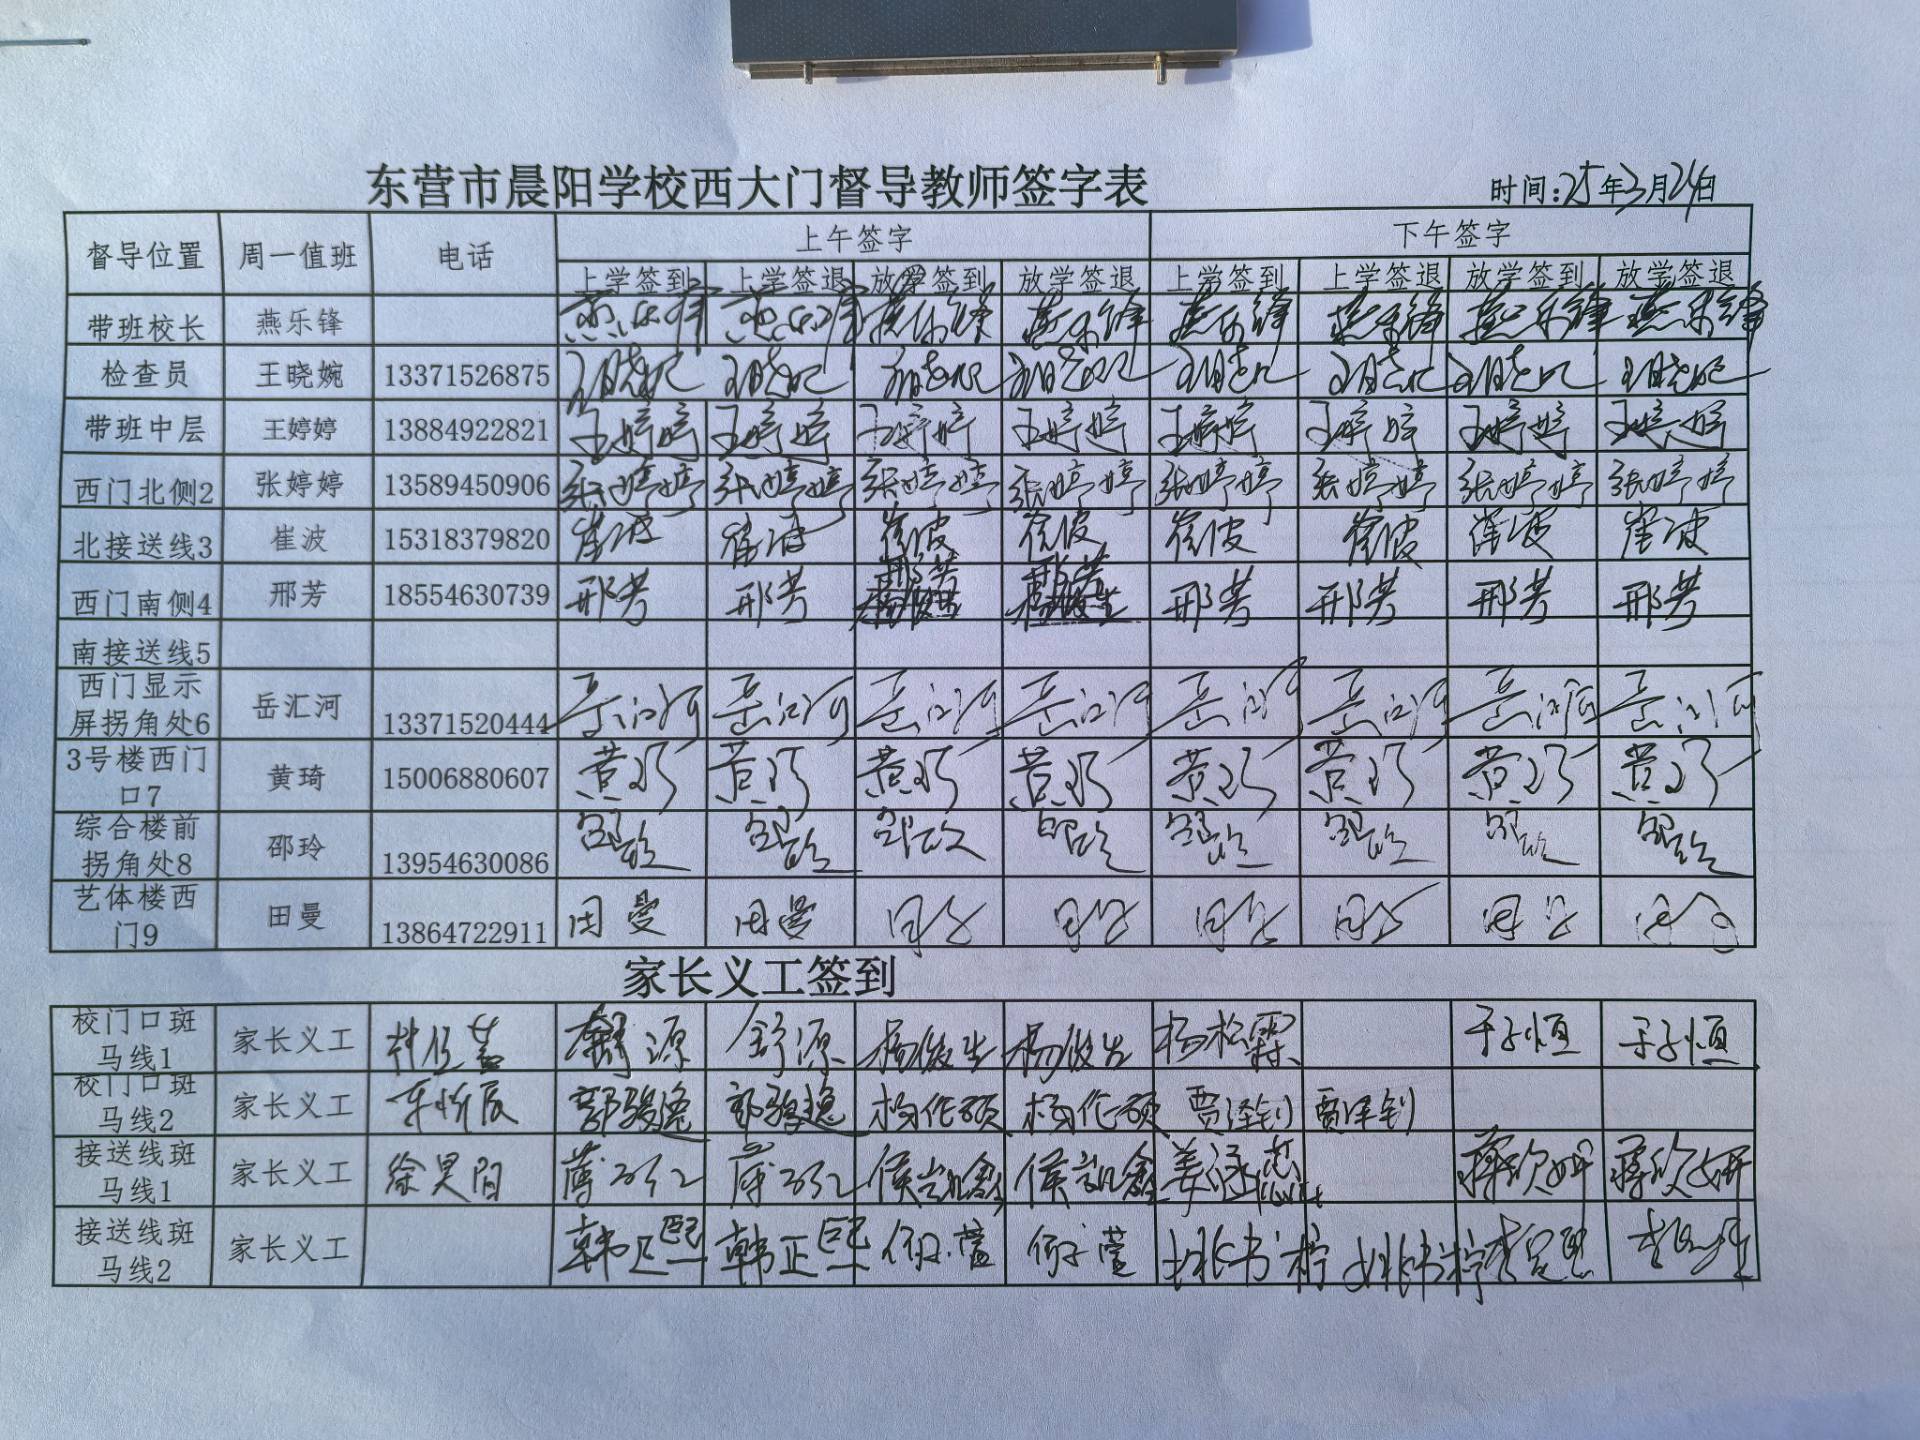 东营市晨阳学校西大门督导教师签字表 时间:25年3月24日
督导位置 周一值班 电话 上午签字 下午签字
上学签到 上学签退 放学签到 放学签退 上学签到 上学签退 放学签到 放学签退
带班校长 燕乐锋 燕乐锋 燕乐锋 燕乐锋 燕乐锋 燕乐锋 燕乐锋 燕乐锋 燕乐锋
检查员 王晓婉 13371526875 王晓婉 王晓婉 王晓婉 王晓婉 王晓婉 王晓婉 王晓婉 王晓婉
带班中层 王婷婷 13884922821 王婷婷 王婷婷 王婷婷 王婷婷 王婷婷 王婷婷 王婷婷 王婷婷
西门北侧2 张婷婷 13589450906 张婷婷 张婷婷 张婷婷 张婷婷 张婷婷 张婷婷 张婷婷 张婷婷
北接送线3 崔波 15318379820 崔波 崔波 崔波 崔波 崔波 崔波 崔波 崔波
西门南侧4 邢芳 18554630739 邢芳 邢芳 邢芳 邢芳 邢芳 邢芳 邢芳 邢芳
南接送线5
西门显示
屏拐角处6 岳汇河 13371520444 岳汇河 岳汇河 岳汇河 岳汇河 岳汇河 岳汇河 岳汇河 岳汇河
3号楼西门
口7 黄琦 15006880607 黄琦 黄琦 黄琦 黄琦 黄琦 黄琦 黄琦 黄琦
综合楼前
拐角处8 邵玲 13954630086 邵玲 邵玲 邵玲 邵玲 邵玲 邵玲 邵玲 邵玲
艺体楼西
门9 田曼 13864722911 田曼 田曼 田曼 田曼 田曼 田曼 田曼 田曼
家长义工签到
校门口斑
马线1 家长义工 舒源 舒源 杨俊生 杨俊生 杨松霖 于子恒 于子恒
校门口斑
马线2 家长义工 郭骏逸 郭骏逸 杨作硕 杨作硕 贾泽钊 贾泽钊
接送线斑
马线1 家长义工 徐昊阳 侯凯鑫 侯凯鑫 蒋欣妍 蒋欣妍
接送线斑
马线2 家长义工 韩正熙 韩正熙 姚书柠 姚书柠